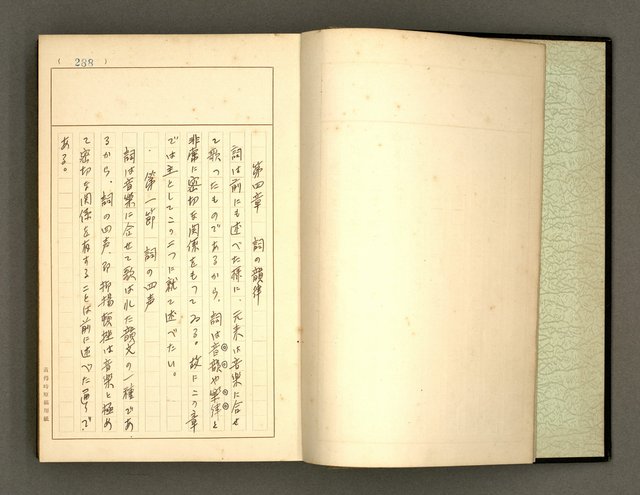 ( 288 )
第四章 詞の韻律
詞は前にも述べた様に、元来は音楽に合せ
て歌ったものであるから、詞は音韻や楽律と
非常に密切な関係をもってゐる。故にこの章
では主としてこの二つに就て述べたい。
第一節 詞の四声
詞は音楽に合せて歌はれた韻文の一種であ
るから、詞の四声、即抑揚頓挫は音楽と極め
て密切な関係を有することは前に述べた通りで
ある。
黄得時原稿用紙